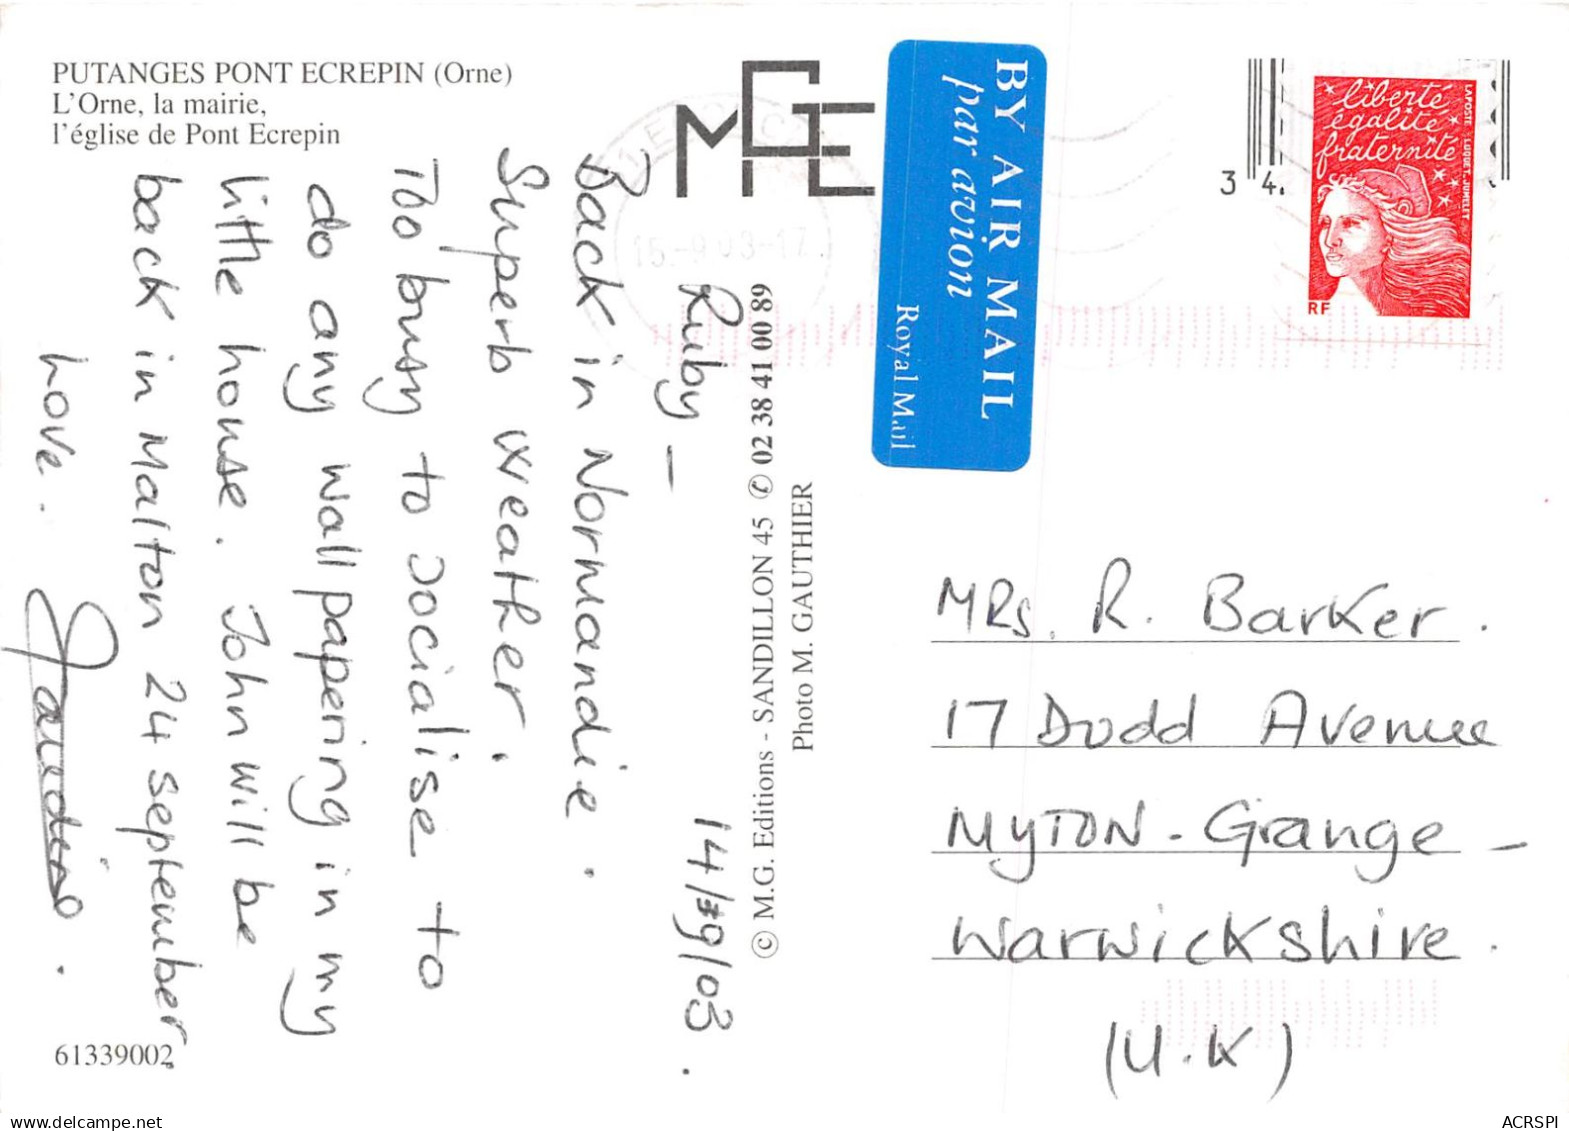 PUTANGES PONT ECREPIN (Orne)
L'Orne, la mairie,
l'église de Pont Ecrepin
MGE
15-9-03-17
BY AIR MAIL
par avion
Royal Mail
34
liberté
égalité
fraternité
LA POSTE LUQUET-JUMELET
RF
14/9/03.
Ruby —
Back in Normandie.
Superb weather.
Too busy to socialise to
do any wallpapering in my
little house. John will be
back in Malton 24 september.
Love.
© M.G. Editions - SANDILLON 45 ✆ 02 38 41 00 89
Photo M. GAUTHIER
MRs. R. Barker.
17 Dodd Avenue
MYTON - Grange -
Warwickshire.
(U.K)
61339002
ACRSPI